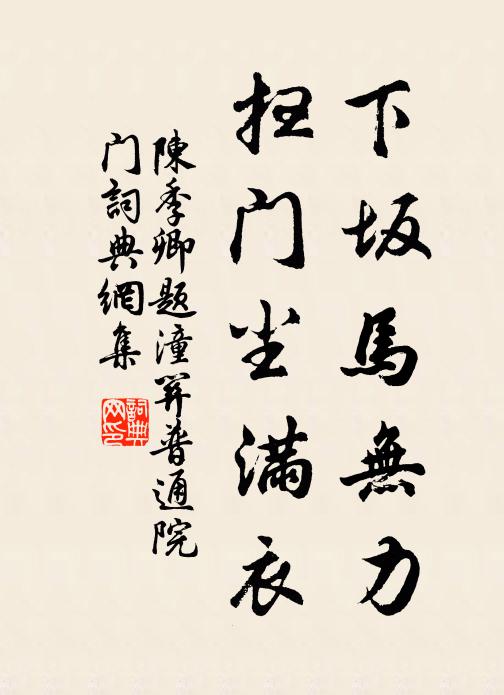 下坂馬無力
扫门尘滿衣
陳季卿题潼關普通院
门詞典網集
詞典網印